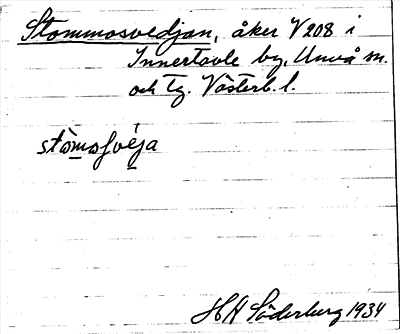 Stommosvedjan, åker V 208 i
Innertavle by, Umeå sn.
och tg. Västerb. l.
stòmosvéja
HH Söderberg 1934